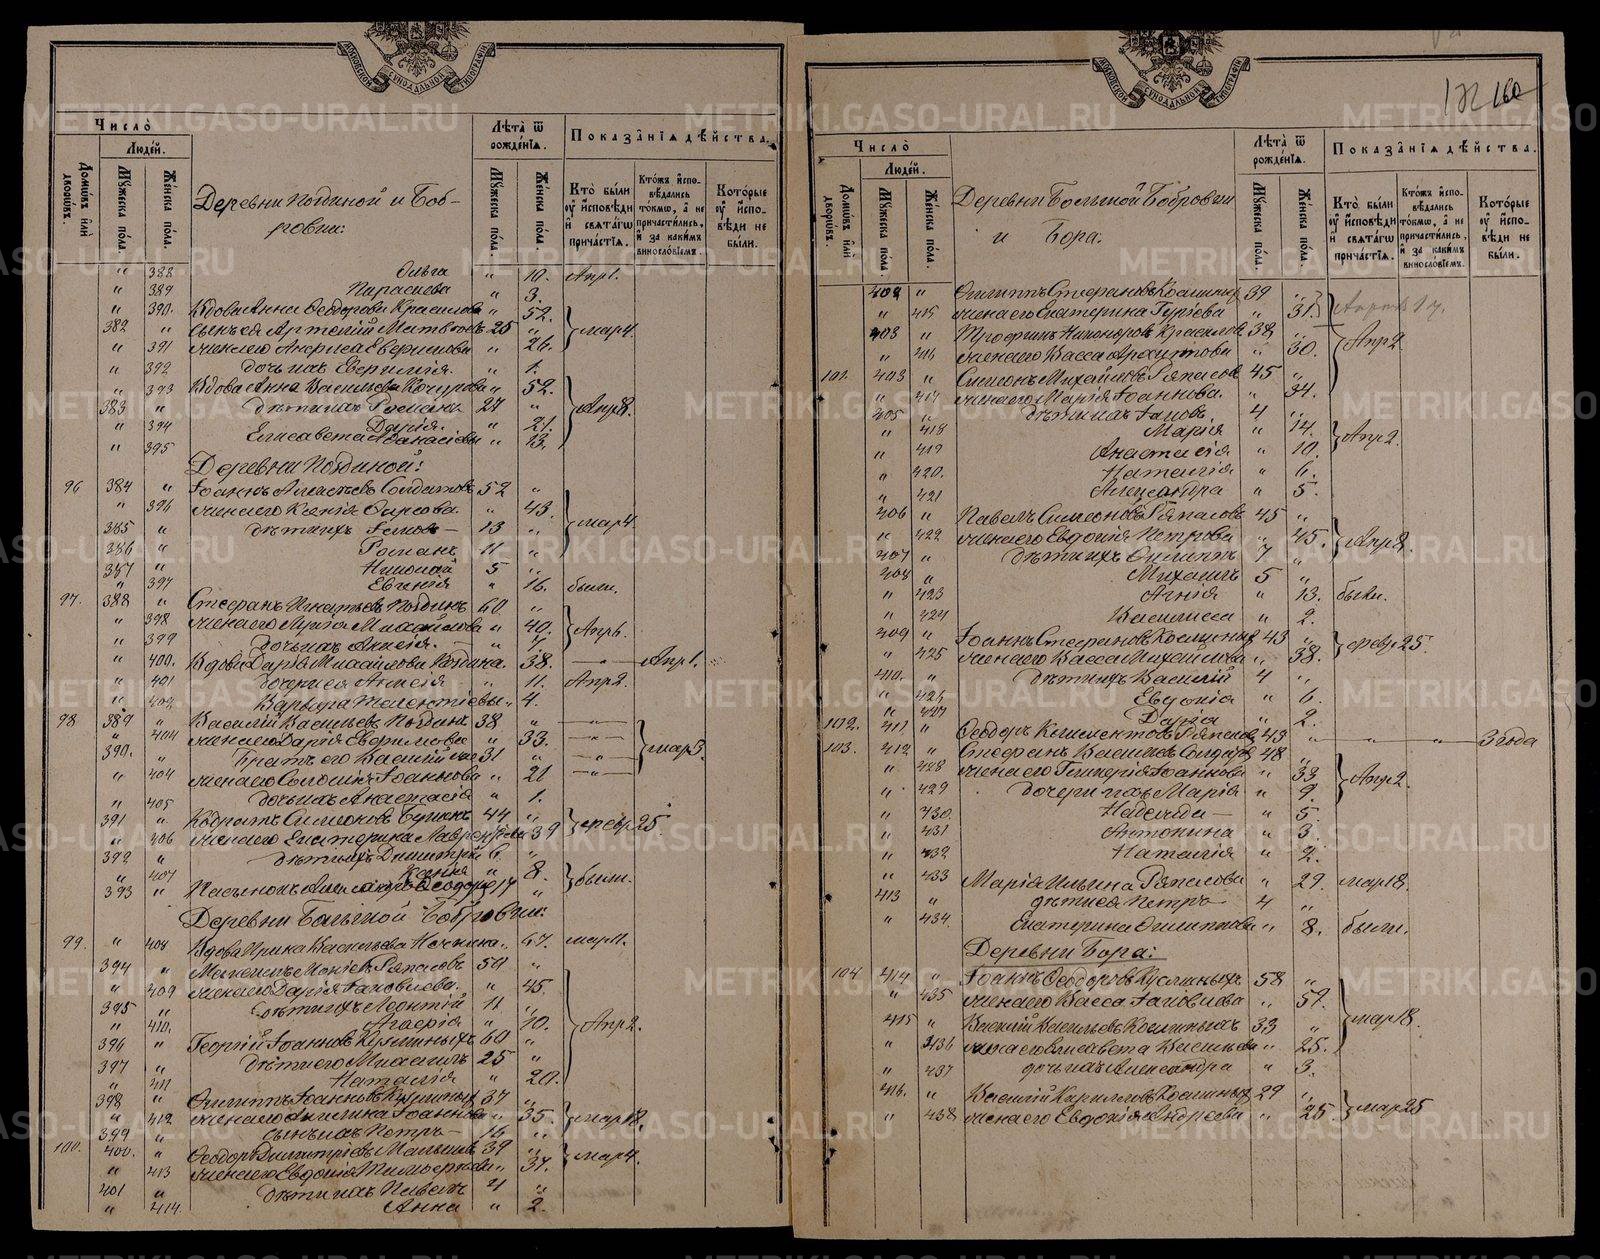 Число̀
Людéй.
Домóвъ и҆лѝ дворóвъ.
Мꙋ́жеска по́ла.
Же́нска по́ла.
Деревни Погдиной и Боб-
ровки:
Лѣ́та ѿ рожде́нїѧ.
Мꙋ́жеска по́ла.
Же́нска по́ла.
Показа̑нїѧ дѣ́йства.
Кто̀ бы́ли оу҆ и҆сповѣ́ди и҆ свѧта́гѡ прича́стїѧ.
Кто́жъ и҆спо-вѣ́дались то́кмѡ, а҆ не причасти́лись, и҆ за каки́мъ винослóвїемъ.
Кото́рые оу҆ и҆спо-вѣ́ди не бы́ли.
" 388 Ольга " 10. Апр1.
" 389 Параскева " 3.
" 390. Вдова Анна Ѳеодорова Красилова " 52.
382 " Сынъ ея Артемій Матвѣевъ 25 " мар4.
" 391 жена его Анфиса Евфимова " 26.
" 392 дочь ихъ Евфимія. " 1.
" 393 Вдова Анна Васильева Кочурова " 52.
383 " дѣти ихъ Романъ 27 " Апр8.
" 394 Дарія. " 21.
" 395 Елисавета Аѳанасіевы " 13.
Деревни Погдиной:
96 384 " Іоаннъ Алексѣевъ Солдатовъ 52 "
" 396 жена его Ксенія Карпова. " 43.
385 " дѣти ихъ Іаковъ 13 " мар4.
386 " Романъ 11 "
387 " Николай 5 "
" 397 Евгенія " 16. были.
97. 388 " Стефанъ Игнатьевъ Погдинъ 60 "
" 398 жена его Марія Михайлова " 40. Апр1.
" 399 дочь ихъ Анисія. " 7.
" 400. Вдова Дарія Михайлова Погдина. " 38. — Апр1.
" 401 дочери ея Анисія " 11. Апр2.
" 402 Варвара Терентіевы " 4.
98 389 " Василій Васильевъ Погдинъ 38 "
" 404 жена его Дарія Евфимова " 33.
390. " Братъ его Василій же 31 " мар3.
" 404 жена его Соломія Іоаннова " 21
" 405 дочь ихъ Анастасія " 1.
391 " Кодратъ Симеоновъ 44 " февр25.
" 406 жена его Екатерина 39
392 " дѣти ихъ Димитрій 6 "
" 407 Ксенія " 8. были.
393 " Пасынокъ Александръ Ѳеодоровъ 17 "
Деревни Большой Бобровки:
99. " 408 Вдова Ирина Васильева " 67. мар11.
394 " Ряпасовъ 50 "
" 409 жена его Дарія Іаковлева. " 45.
395 " дѣти ихъ Леонтій 11 "
" 410. Агафія " 10. Апр2.
396 " Георгій Іоанновъ 60 "
397 " дѣти его Михаилъ 25 "
" 411 Наталія " 20.
398 " Филиппъ Іоанновъ 37 "
" 412 жена его Акилина Іоаннова " 35. мар18.
399 " сынъ ихъ Петръ 16 "
100. 400. " Ѳеодоръ Димитріевъ 39 " мар4.
" 413 жена его Евдокія Тимофеева " 37.
401 " дѣти ихъ Павелъ 4 "
" 414. Анна " 2.
172 160
Число̀
Людéй.
Домóвъ и҆лѝ дворóвъ.
Мꙋ́жеска по́ла.
Же́нска по́ла.
Деревни Большой Бобровки
и Бора.
Лѣ́та ѿ рожде́нїѧ.
Мꙋ́жеска по́ла.
Же́нска по́ла.
Показа̑нїѧ дѣ́йства.
Кто̀ бы́ли оу҆ и҆сповѣ́ди и҆ свѧта́гѡ прича́стїѧ.
Кто́жъ и҆спо-вѣ́дались то́кмѡ, а҆ не причасти́лись, и҆ за каки́мъ винослóвїемъ.
Кото́рые оу҆ и҆спо-вѣ́ди не бы́ли.
402 " Филиппъ Стефановъ Косминыхъ 39 "
" 415 жена его Екатерина Гурьева " 37.
403 " Трофимъ Никаноровъ Красиловъ 38 " Апр2
" 416 жена его Васса Архипова " 30.
101. 403 " Симеонъ Михайловъ Ряпасовъ 45 "
" 417 жена его Марія Іоаннова. " 34.
405 " дѣти ихъ Іаковъ 4 "
" 418 Марія " 14. Апр2.
" 419 Анастасія " 10.
" 420. Наталія " 6.
" 421 Александра " 5.
406 " Павелъ Симеоновъ Ряпасовъ 45 "
" 422 жена его Евдокія Петрова " 45. Апр8.
407 " дѣти ихъ Филиппъ 7 "
408 " Михаилъ 5 "
" 423 Агнія " 13. были.
" 424 Василисса " 2.
409 " Іоаннъ Стефановъ Косминыхъ 43 " февр25.
" 425 жена его Васса Михайлова " 38.
410. " дѣти ихъ Василій 4 "
" 426 Евдокія " 6.
" 427 Дарія " 2.
102. 411 " Ѳеодоръ Климентовъ Ряпасовъ 43 " " " 3 года
103. 412 " Стефанъ Васильевъ 48 "
" 428 жена его Гликерія Іоаннова " 33 Апр2.
" 429 дочери ихъ Марія " 9.
" 430. Надежда " 5.
" 431 Антонина " 3.
" 432 Наталія " 2.
" 433 Марія Ильина Ряпасова " 29. мар18.
413 " дѣти ея Петръ 4 "
" 434. Екатерина Филиппова " 8. были.
Деревни Бора:
104 414 " Іоаннъ Ѳеодоровъ Косминыхъ 58 "
" 435 жена его Васса Іаковлева " 57.
415 " Василій Васильевъ Косминыхъ 33 " мар18.
" 436 жена его Елисавета Васильева " 25.
" 437 дочь ихъ Александра " 3.
416. " Василій Кирилловъ Косминыхъ 29 "
" 438 жена его Евдокія Андреева " 25. мар25
METRIKI.GASO-URAL.RU